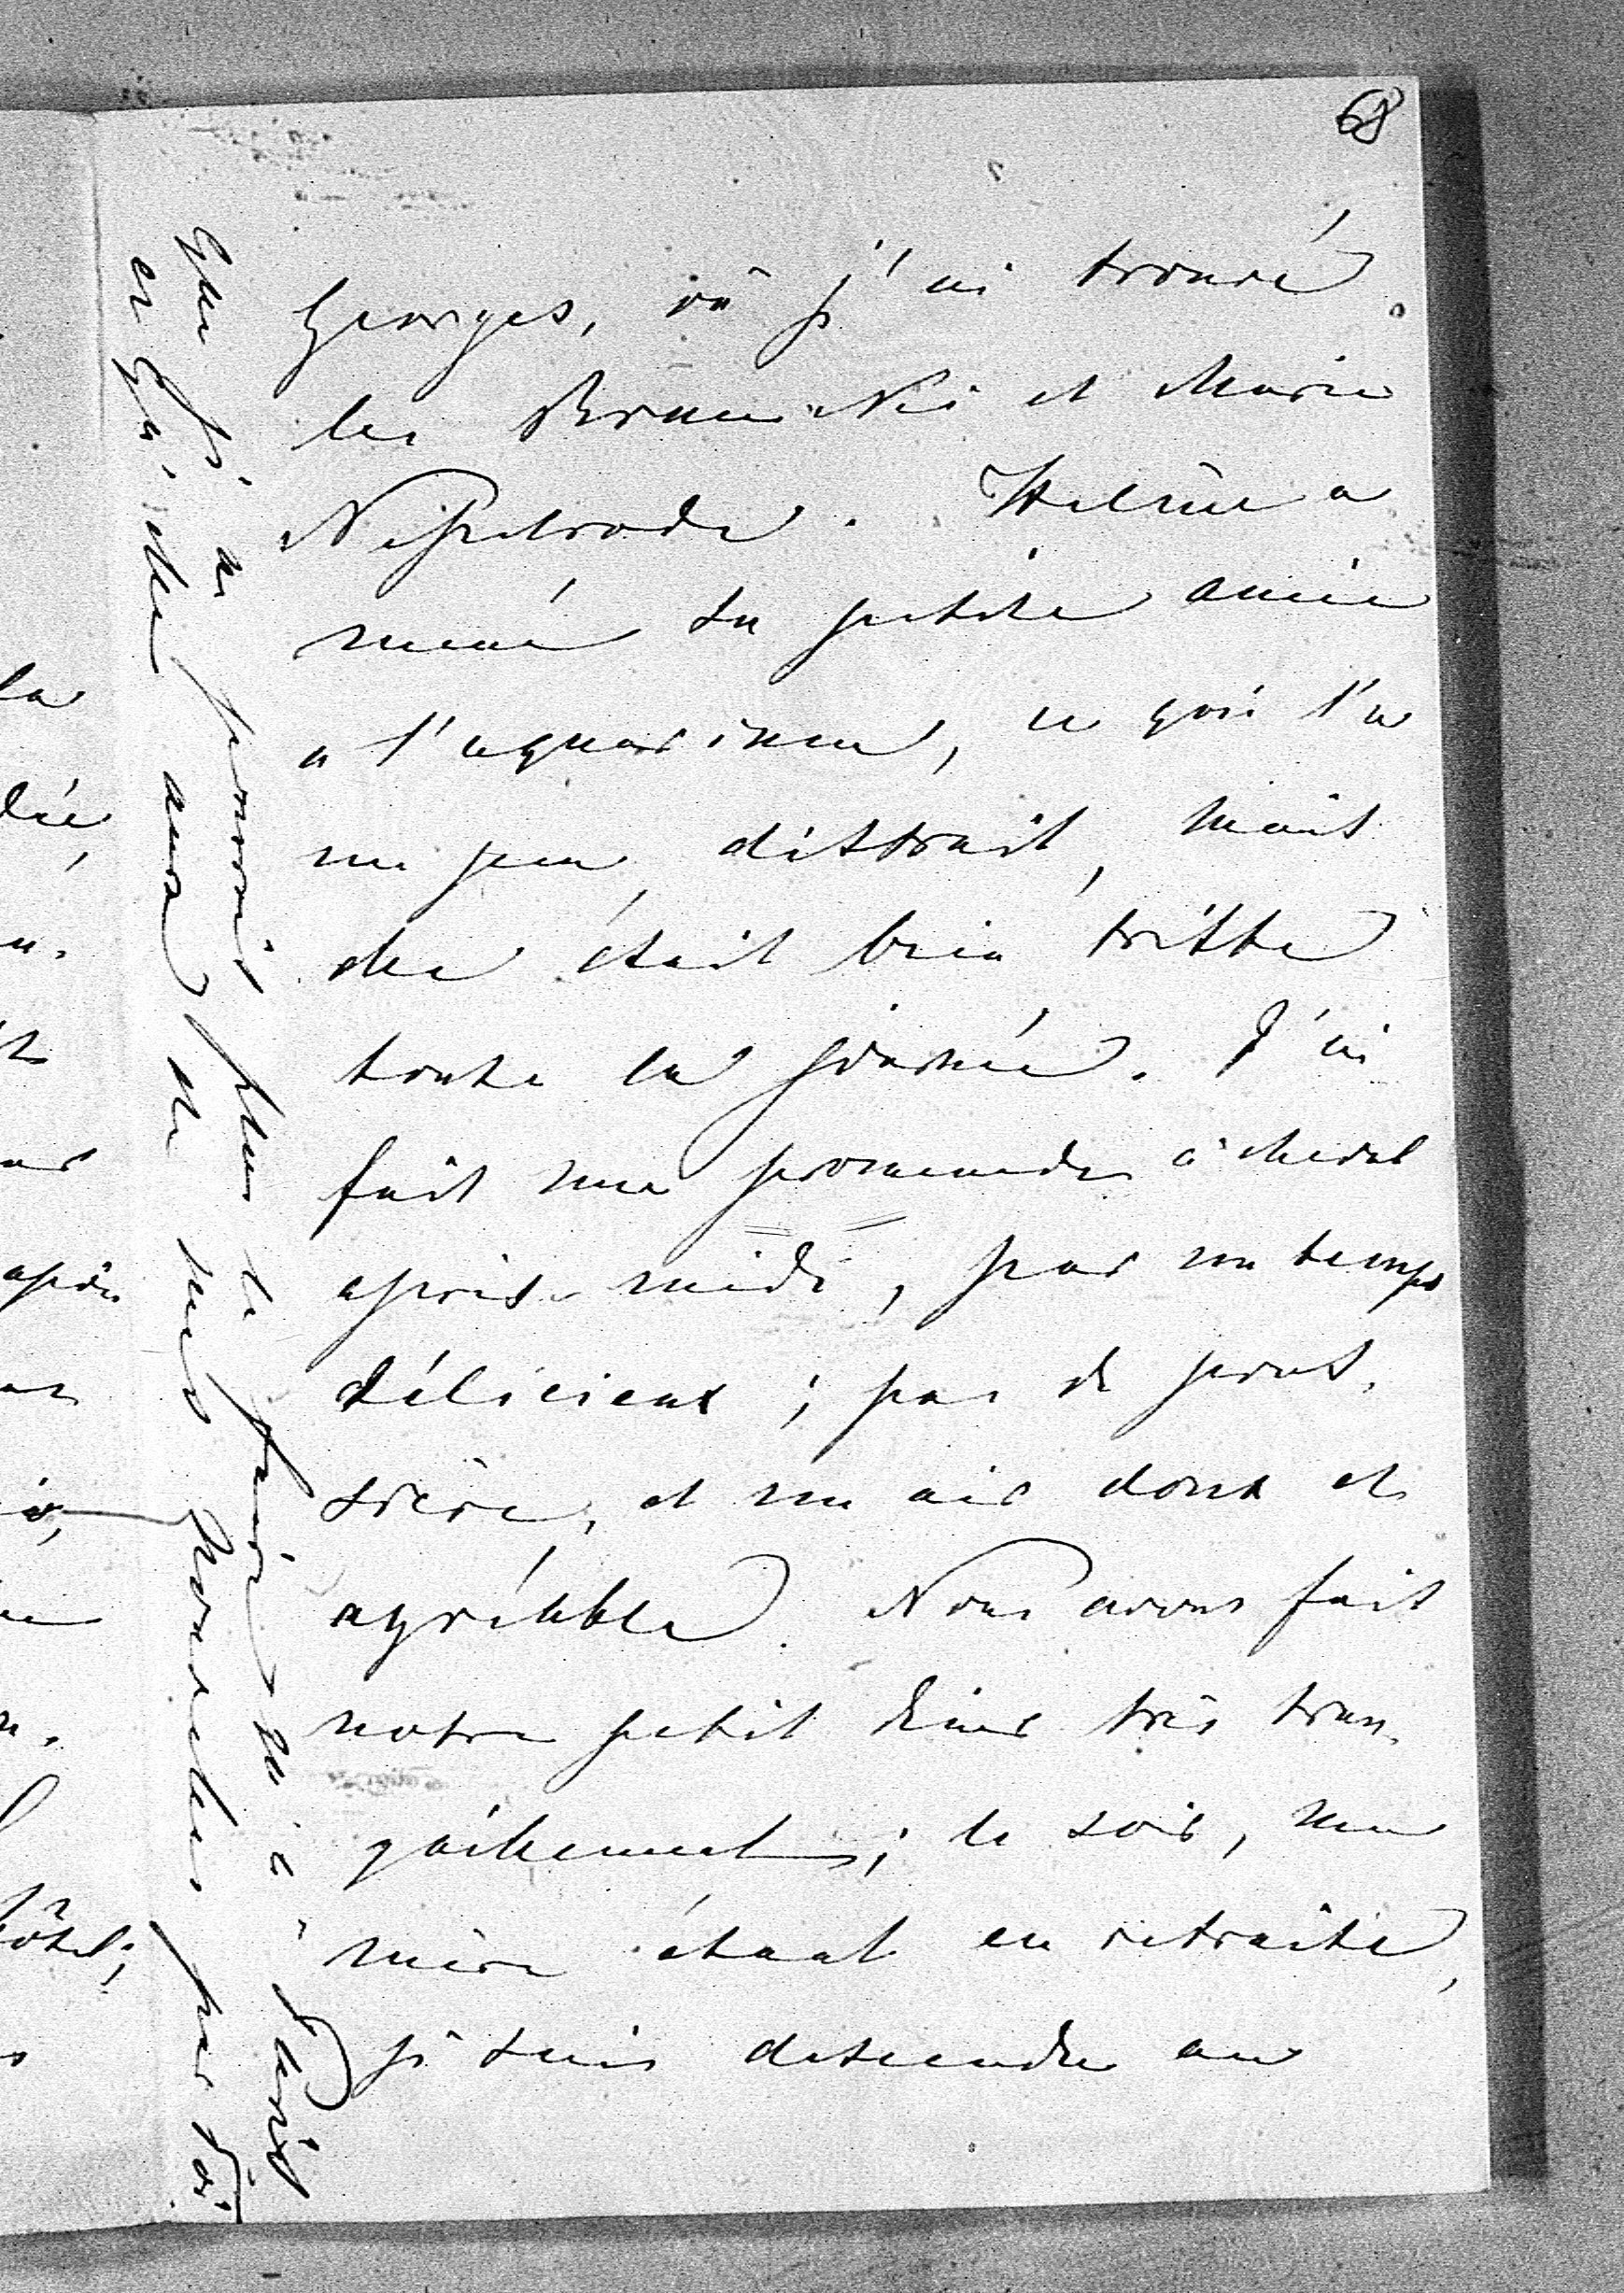 68
Georges, où j'ai trouvé
les Branicki et Marie
Nesselrode. Hélène a
mené sa petite amie
a l'aquarium, ce qui l'a
un peu distrait, mais
elle était bien triste
toute la journée. J'ai
fait une promenade à cheval
après-midi, par un temps
délicieux; pas de pous-
sière, et un air doux et
agréable. Nous avons fait
notre petit diner très tran-
quillement; le soir, ma
mère étant en retraite,
je suis descendu au
que je ne pourrais plus le faire ni à Paris
et qu'elle aura de mes nouvelles par toi.
la
après
hôtel;